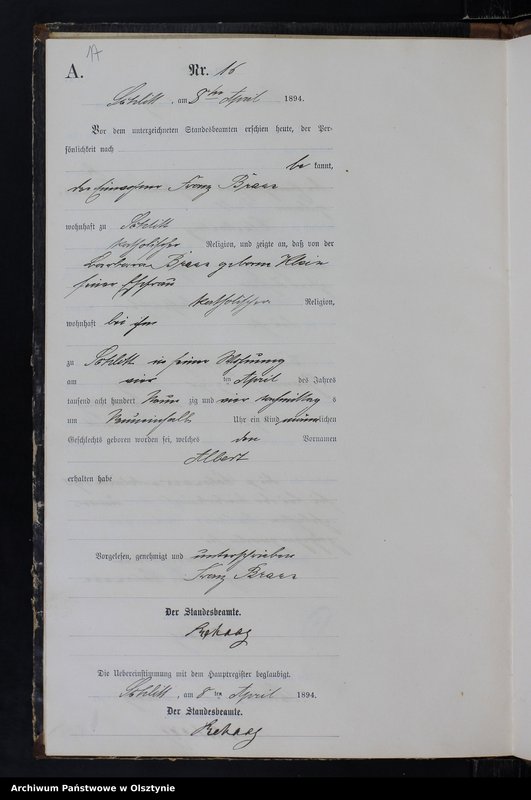 A. Nr. 16
Schlitt, am 8ten April 1894.
Vor dem unterzeichneten Standesbeamten erschien heute, der Per-
sönlichkeit nach
be kannt,
der Einwohner Franz
wohnhaft zu Schlitt
katholischer Religion, und zeigte an, daß von der
Barbara geborene Klein
seiner Ehefrau
katholischer Religion,
wohnhaft bei ihm
zu Schlitt in seiner Wohnung
am vier ten April des Jahres
tausend acht hundert Neun zig und vier Nachmittag s
um Neuneinhalb Uhr ein Kind männlichen
Geschlechts geboren worden sei, welches den Vornamen
Albert
erhalten habe
Vorgelesen, genehmigt und unterschrieben
Franz
Der Standesbeamte.
Rehaag
Die Uebereinstimmung mit dem Hauptregister beglaubigt.
Schlitt, am 8 ten April 1894.
Der Standesbeamte.
Rehaag
Archiwum Państwowe w Olsztynie